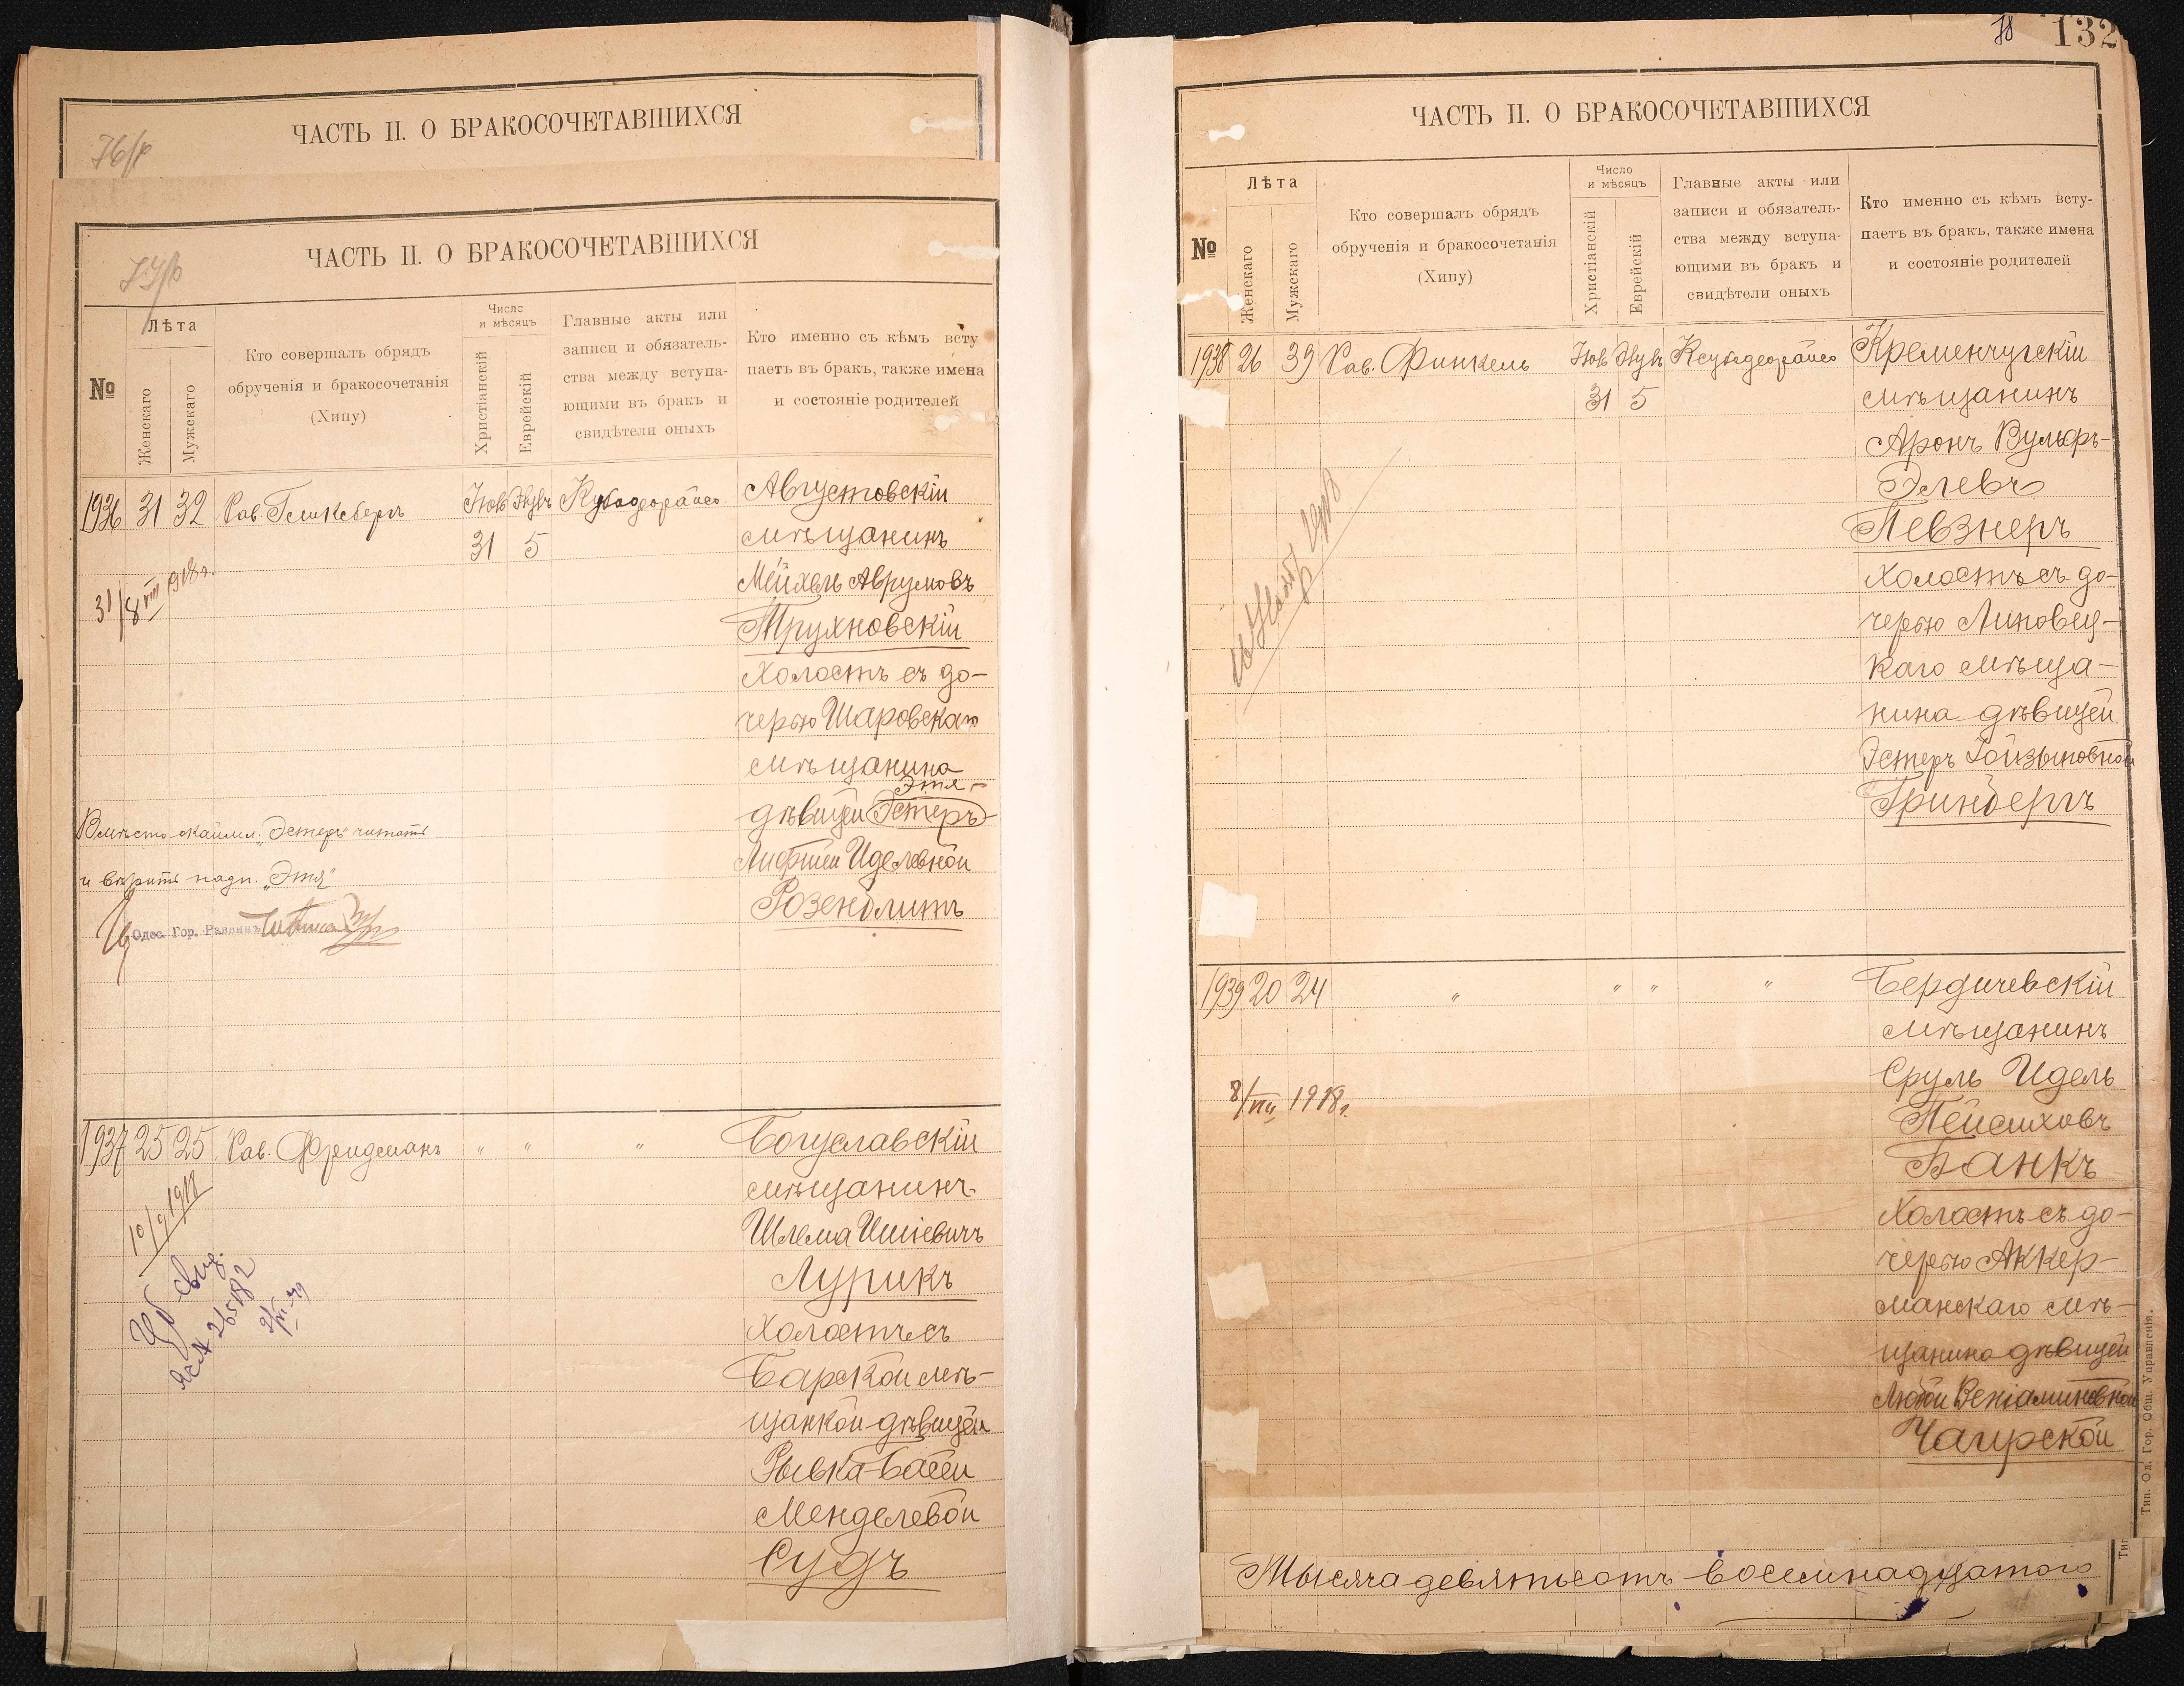 ЧАСТЬ II. О БРАКОСОЧЕТАВШИХСЯ
ЧАСТЬ II. О БРАКОСОЧЕТАВШИХСЯ
№
Лѣта
Женскаго
Мужскаго
Кто совершалъ обрядъ
обрученія и бракосочетанія
(Хипу)
Число
и мѣсяцъ
Христіанскій
Еврейскій
Главные акты или
записи и обязатель-
ства между вступа-
ющими въ бракъ и
свидѣтели оныхъ
Кто именно съ кѣмъ всту
паетъ въ бракъ, также имена
и состояніе родителей
1936 31 32 Рав. Гликсбергъ
31 5
Августовскій
мѣщанинъ
Мейхель Аврумовъ
Труяновскій
Холостъ съ до-
черью Шаровскаго
мѣщанина
Этя-
дѣвицей Эстеръ-
Лифшей Иделевной
Розенблитъ
31/8 VIII 1918 г.
Вмѣсто „Эстеръ" читать
и вѣрить надп. „Этя"
Одес. Гор. Раввинъ
1937 25 25 Рав. Фридманъ " " "
Богуславскій
мѣщанинъ
Шлема Ишіевичъ
Лурикъ
Холостъ съ
Барской мѣ-
щанкой дѣвицей
Рывка-Басей
Менделевой
Судъ
10/9 1918
132
78
ЧАСТЬ II. О БРАКОСОЧЕТАВШИХСЯ
№
Лѣта
Женскаго
Мужскаго
Кто совершалъ обрядъ
обрученія и бракосочетанія
(Хипу)
Число
и мѣсяцъ
Христіанскій
Еврейскій
Главные акты или
записи и обязатель-
ства между вступа-
ющими въ бракъ и
свидѣтели оныхъ
Кто именно съ кѣмъ всту-
паетъ въ бракъ, также имена
и состояніе родителей
1938 26 39 Рав. Финкель
31 5
Кременчугскій
мѣщанинъ
Аронъ Вульфъ-
Элевъ
Певзнеръ
Холостъ съ до-
черью Липовец-
каго мѣща-
нина дѣвицей
Эстеръ
Гринбергъ
1939 20 24 " " " "
Бердичевскій
мѣщанинъ
Сруль Идель
Пейсиховъ
Банкъ
Холостъ съ до-
черью Аккер-
манскаго мѣ-
щанина дѣвицей
Любой Веніаминовной
Чагирской
8/VIII 1918 г.
Тысяча девятьсотъ восемнадцатого
Тип. Од. Гор. Общ. Управленія.
Тип